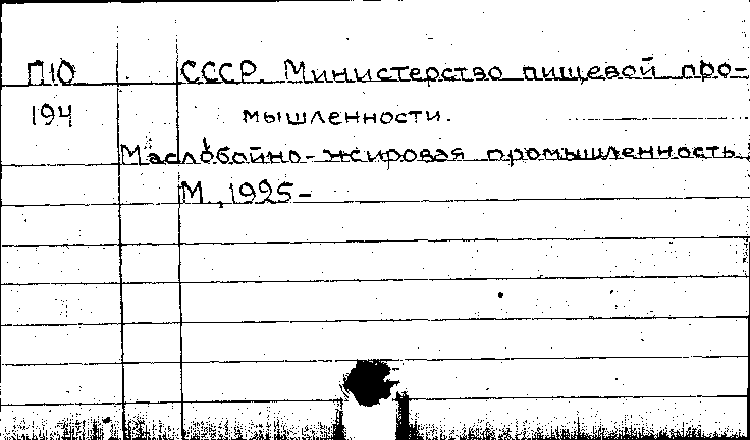 П10 СССР. Министерство пищевой про-
194 мышленности.
Маслобойно-жировая промышленность.
М., 1925-